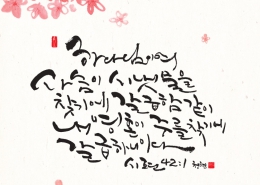 하나님이여
사슴이 시냇물을
찾기에 갈급함같이
내 영혼이 주를 찾기에
갈급하니이다
시편 42:1